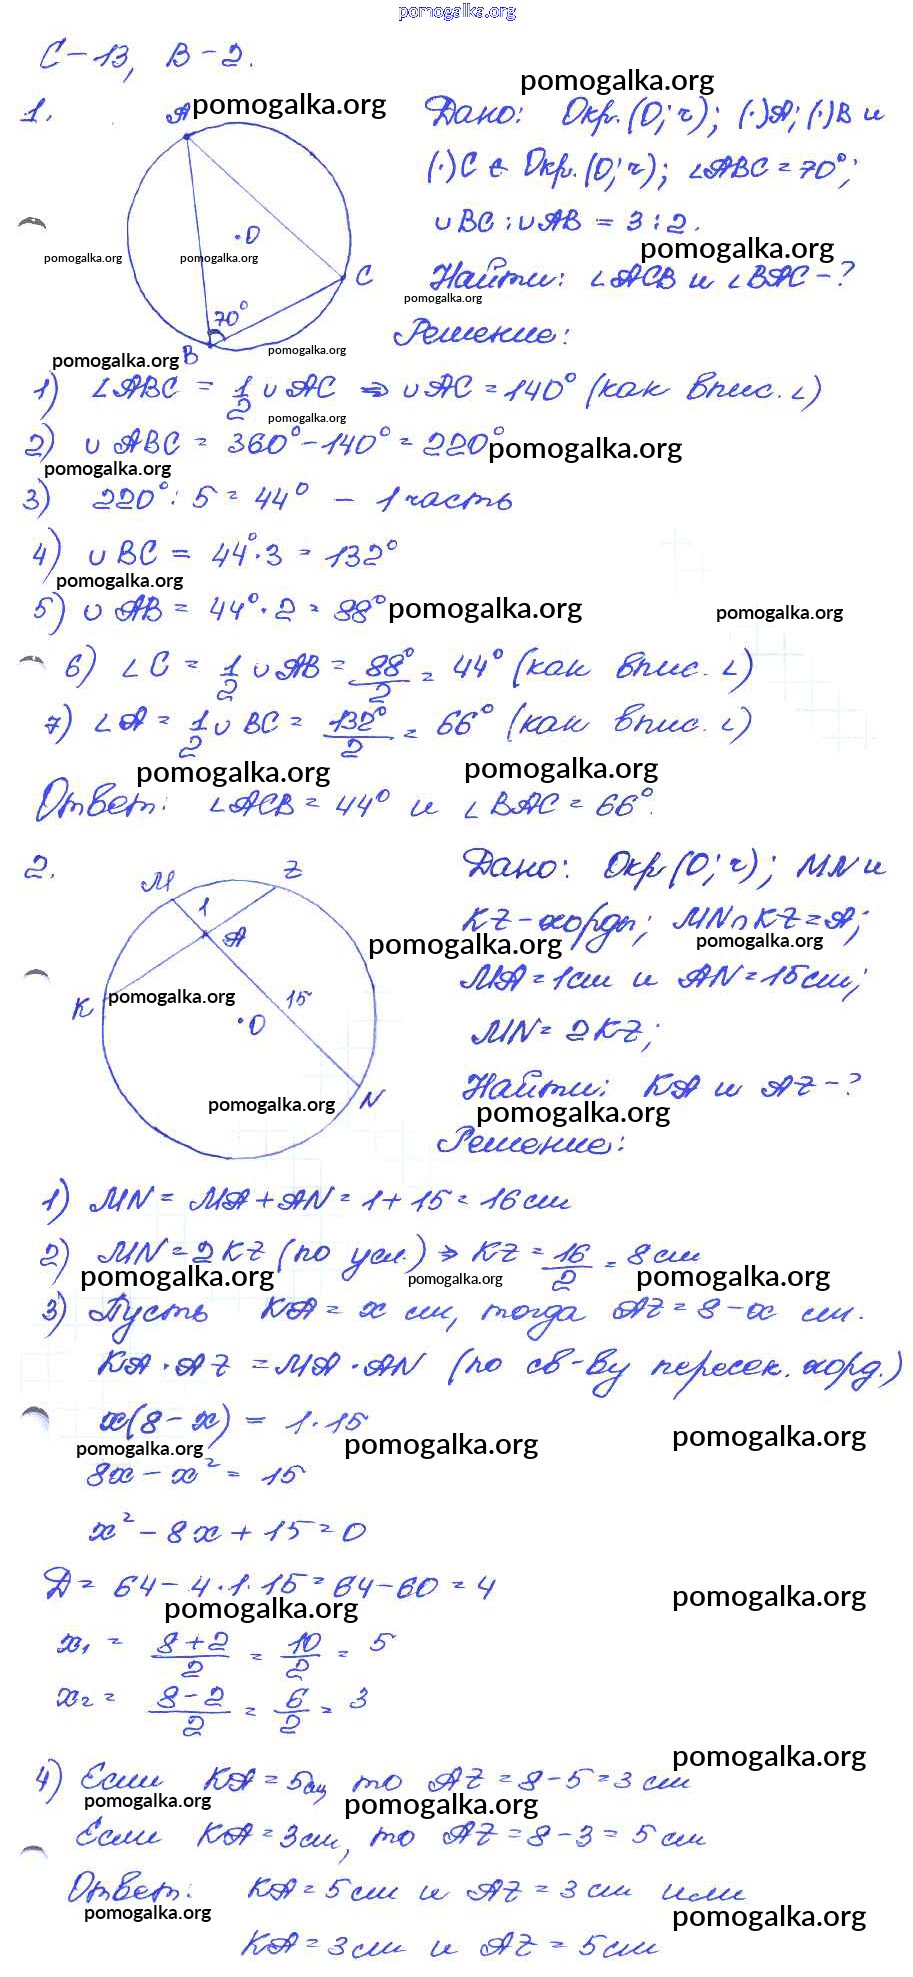 pomogalka.org
С-13, В-2.
pomogalka.org
1.
A
pomogalka.org
Дано: Окр.(O;r); (·)A; (·)B и
(·)C ∈ Окр.(O;r); ∠ABC = 70°;
∪BC : ∪AB = 3 : 2.
O
pomogalka.org
pomogalka.org
pomogalka.org
C
Найти: ∠ACB и ∠BAC - ?
pomogalka.org
70°
Решение:
B
pomogalka.org
pomogalka.org
1) ∠ABC = 1/2 ∪AC ⇒ ∪AC = 140° (как впис. ∠)
pomogalka.org
2) ∪ABC = 360° - 140° = 220°
pomogalka.org
pomogalka.org
3) 220° : 5 = 44° - 1 часть
4) ∪BC = 44° · 3 = 132°
pomogalka.org
5) ∪AB = 44° · 2 = 88°
pomogalka.org
pomogalka.org
6) ∠C = 1/2 ∪AB = 88°/2 = 44° (как впис. ∠)
7) ∠A = 1/2 ∪BC = 132°/2 = 66° (как впис. ∠)
pomogalka.org
pomogalka.org
Ответ: ∠ACB = 44° и ∠BAC = 66°.
2.
M
Z
Дано: Окр(O;r); MN и
1
A
KZ - хорды; MN∩KZ = A;
pomogalka.org
pomogalka.org
K
pomogalka.org
15
MA = 1см и AN = 15см;
O
MN = 2KZ;
N
Найти: KA и AZ - ?
pomogalka.org
pomogalka.org
Решение:
1) MN = MA + AN = 1 + 15 = 16см
2) MN = 2KZ (по усл.) ⇒ KZ = 16/2 = 8см
pomogalka.org
pomogalka.org
pomogalka.org
3) Пусть KA = x см, тогда AZ = 8 - x см.
KA · AZ = MA · AN (по св-ву пересек. хорд.)
x(8 - x) = 1 · 15
pomogalka.org
pomogalka.org
pomogalka.org
8x - x² = 15
x² - 8x + 15 = 0
D = 64 - 4 · 1 · 15 = 64 - 60 = 4
pomogalka.org
pomogalka.org
x₁ = 8+2/2 = 10/2 = 5
x₂ = 8-2/2 = 6/2 = 3
pomogalka.org
4) Если KA = 5см, то AZ = 8 - 5 = 3 см
pomogalka.org
pomogalka.org
Если KA = 3см, то AZ = 8 - 3 = 5 см
Ответ: KA = 5см и AZ = 3 см или
pomogalka.org
pomogalka.org
KA = 3см и AZ = 5см